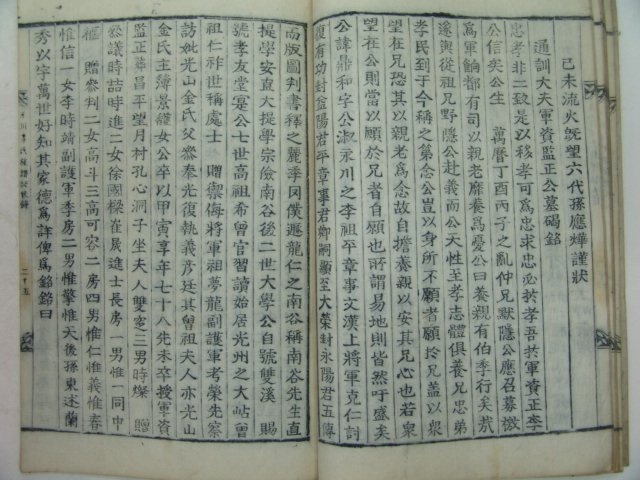 己未流火旣望六代孫應燁謹狀
通訓大夫軍資監正公墓碣銘
忠孝非二致是以移孝可爲忠求忠必扵孝吾扵軍資正李
公信矣公
萬曆丁酉丙子之亂仲兄默隱公應召募檄
爲軍餉都有司以親老靡養爲憂公曰養親有伯李行矣哉
遂與從祖兄野隱公赴義而公天性至孝志體俱養兄忠弟
孝民到于今稱之第念公豈以身所不願者願扵兄盖以衆
望在兄恐其以親老爲念故自擔養親以安其兄心也若衆
望在公則當以願扵兄者自願也所謂易地則皆然吁盛矣
公諱鼎和字公淑永川之李祖平章事文漢上將軍克仁討
復有功封益陽君平章事君鄕嗣顯至大榮封永陽君五傳
而版圖判書釋之麗季冈僕遯龍仁之南谷稱南谷先生直
提學安直大提學宗儉南谷後二世大學公自號雙溪 賜
號孝友堂寔公七世高祖希曾官習讀始居光州之大岾曾
祖仁祚世稱處士 贈禦侮將軍祖夢龍副護軍考榮先察
訪妣光山金氏父參奉光復執義彦廷其曾祖夫人亦光山
金氏主簿景纘女公卒以甲寅享年七十八先未卒授軍資
監正葬昌平望月村孔心洞子坐夫人雙窆三男時燦 贈
叅議時誥時進二女徐國樑崔晟進士長房一男惟一同中
樞 贈參判二女高斗三高可容二房四男惟仁惟義惟春
惟信一女李時靖副護軍季房二男惟擎惟天後孫東述蘭
秀以字萬世好知其家德爲詳俾爲銘銘曰
二十五